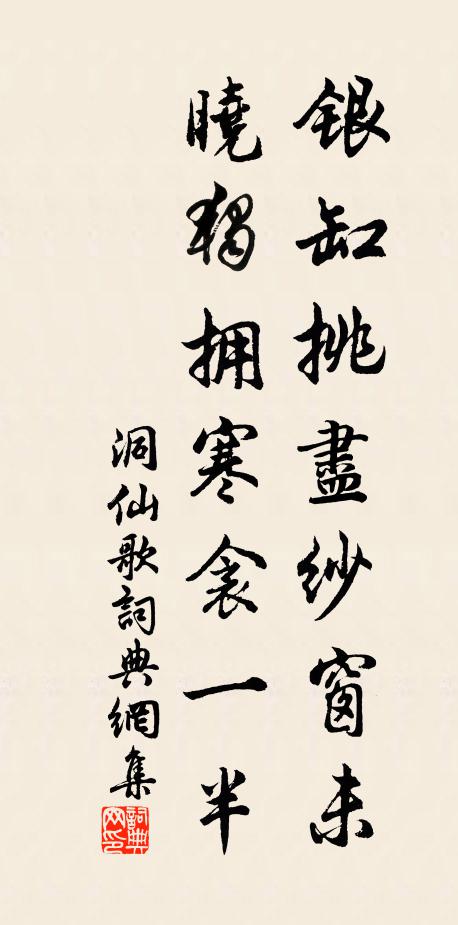 銀缸挑盡紗窗未
曉獨拥寒衾一半
洞仙歌詞典網集
詞典网印